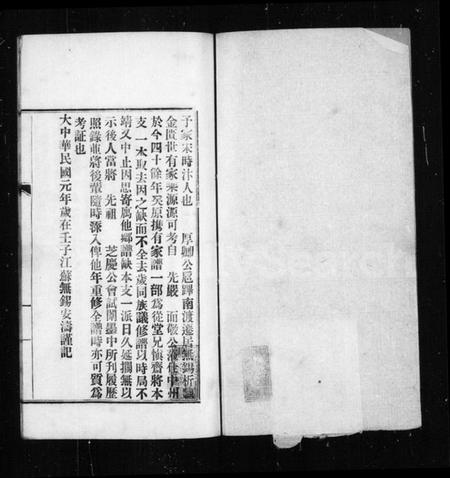 予家宋時汴人也 厚卿公扈蹕南渡遷居無錫析
金匱世有家乘源源可考自 先嚴 面敬公液仕中州
於今四十餘年矣原攜有家譜一部為從堂兄愼齋將本
支一本取去因之缺而不全去歲同族議修譜以時局不
靖又中止因思寄居他鄉譜缺本支一派日久延擱無以
示後人當將 先祖 芝慶公會試闈墨中所刊履歷
照錄並將後輩隨時添入俾他年重修全譜時亦可質為
考証也
大中華民國元年歲在壬子江蘇無錫安濤謹記